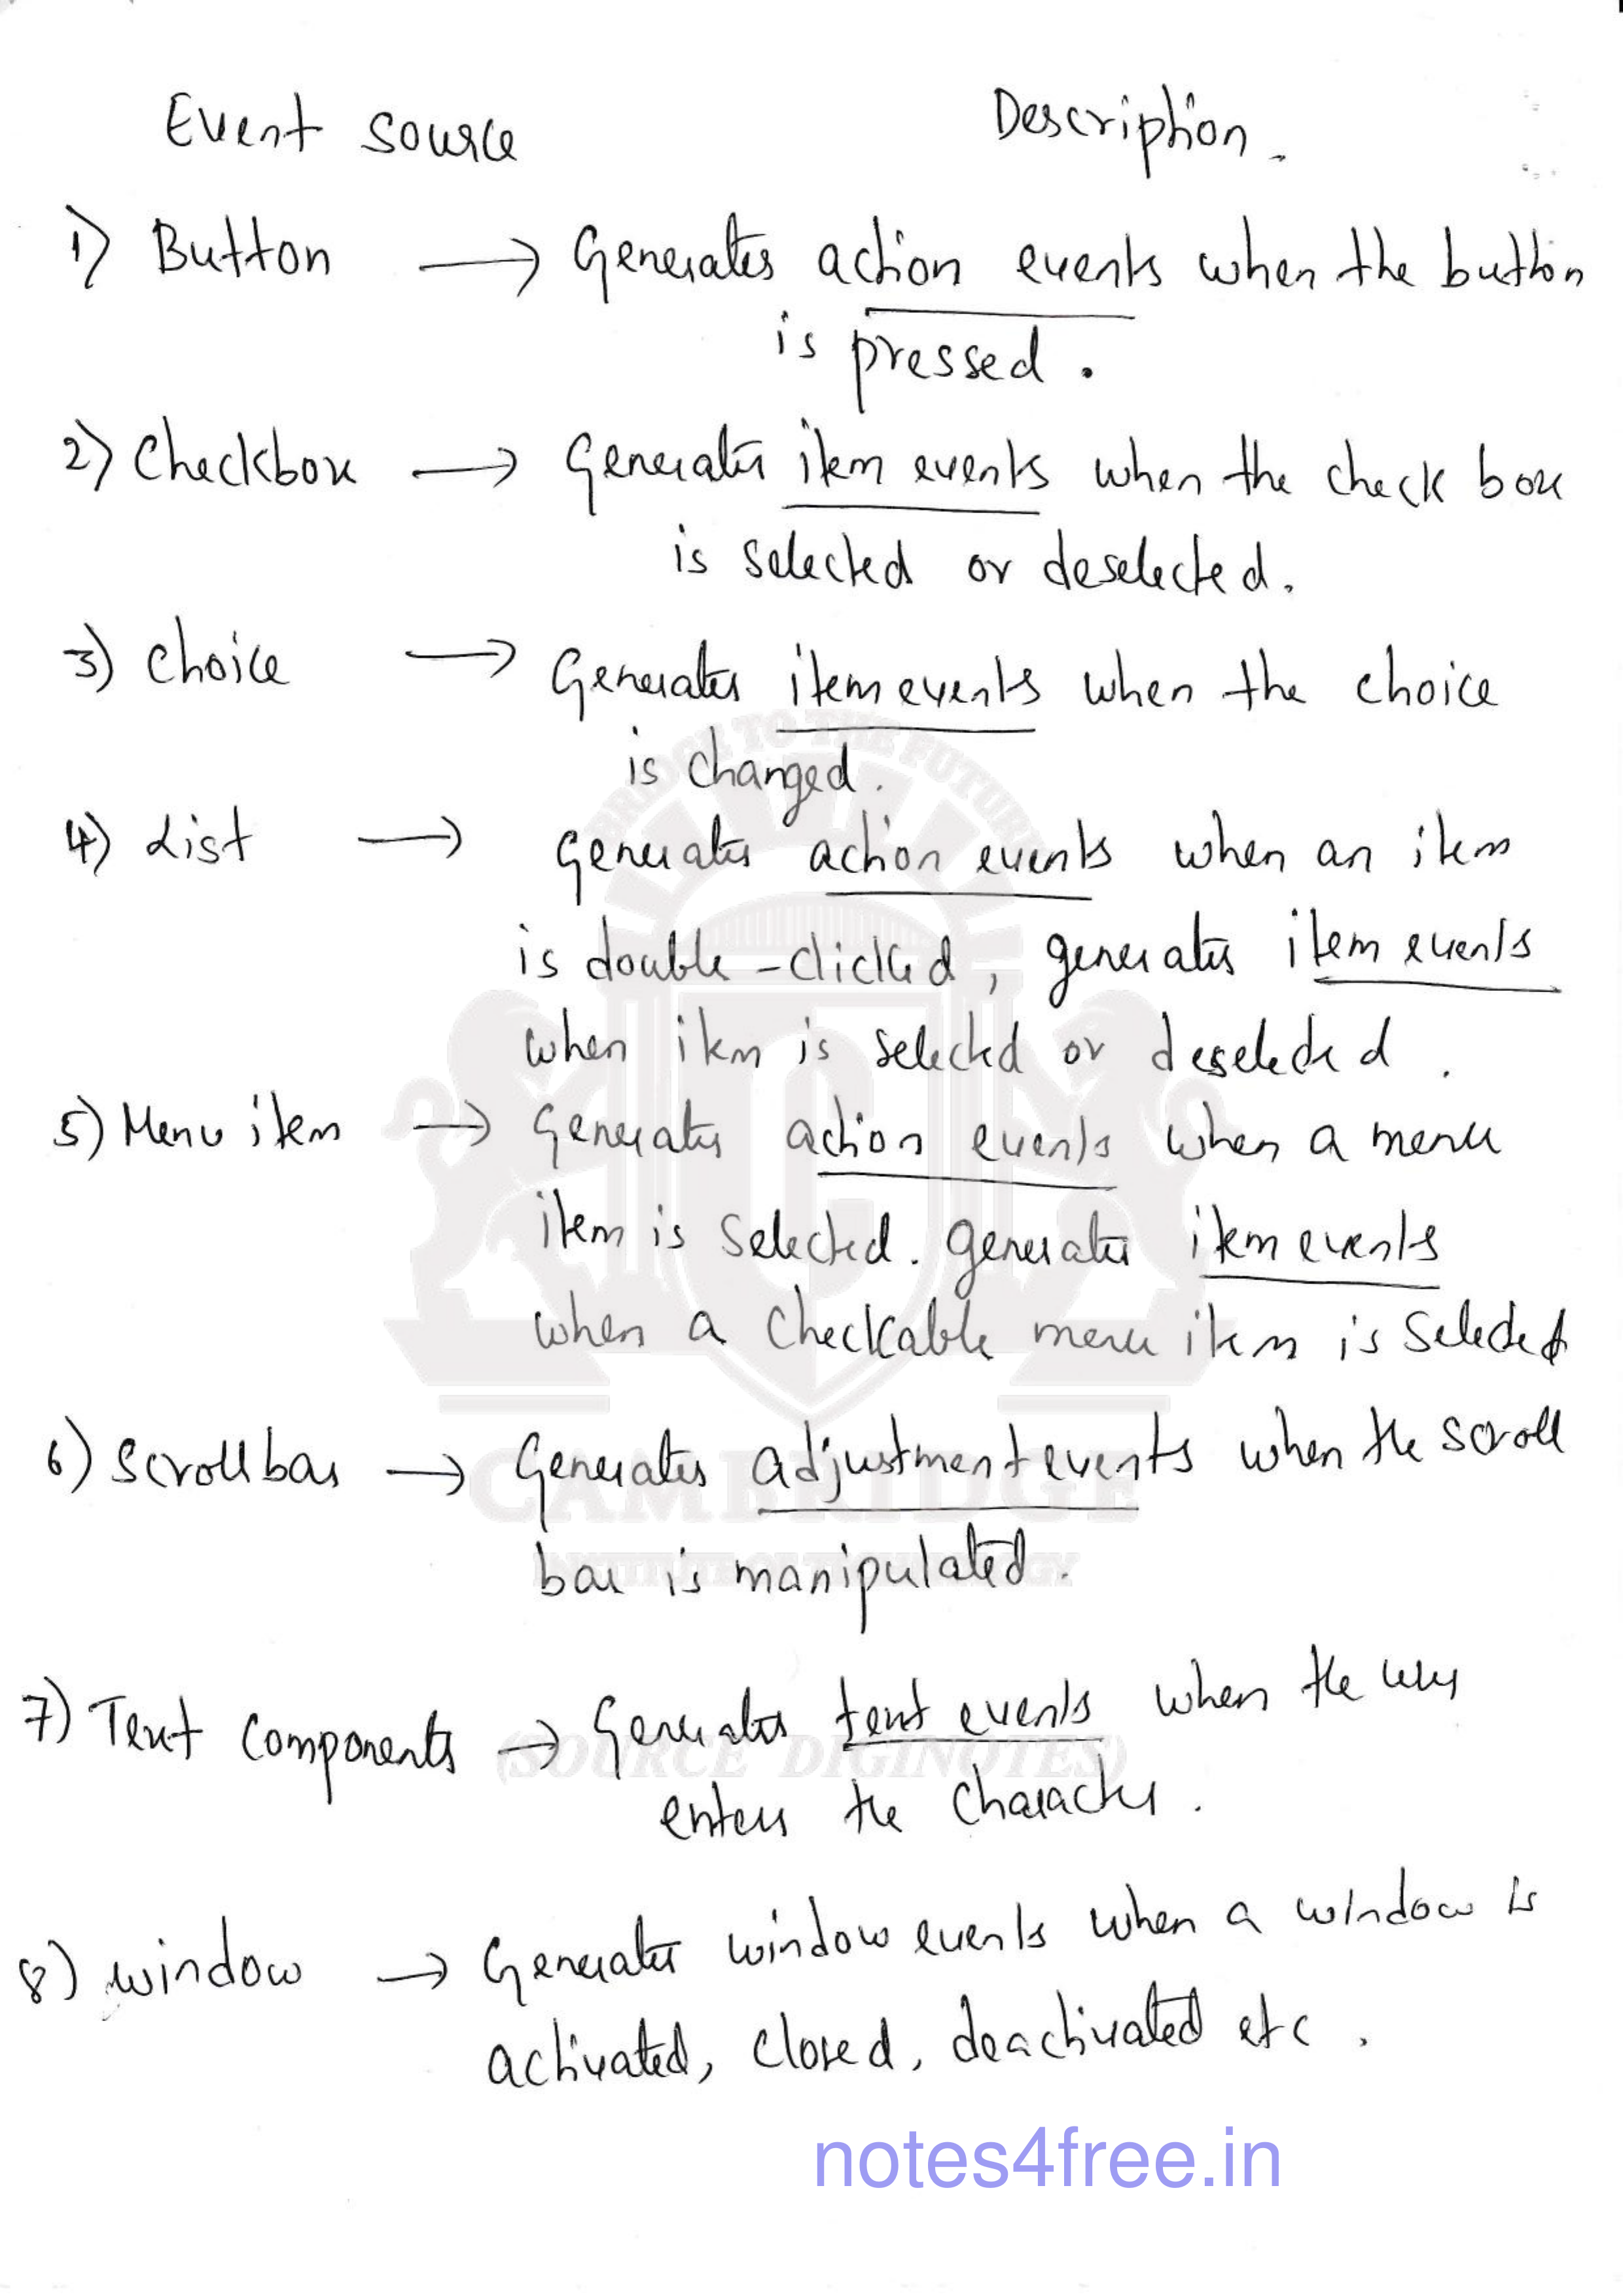 Event source Description.
1) Button → Generates action events when the button
is pressed.
2) Checkbox → Generates item events when the check box
is selected or deselected.
3) Choice → Generates item events when the choice
is changed.
4) List → Generates action events when an item
is double-clicked, generates item events
when item is selected or deselected.
5) Menu item → Generates action events when a menu
item is selected. generates item events
when a checkable menu item is selected
6) Scrollbar → Generates adjustment events when the scroll
bar is manipulated.
7) Text components → Generates text events when the user
enters the character.
8) window → Generates window events when a window is
activated, closed, deactivated etc.
BRIDGE TO THE FUTURE
CAMBRIDGE
INSTITUTE OF TECHNOLOGY
(SOURCE DIGINOTES)
notes4free.in